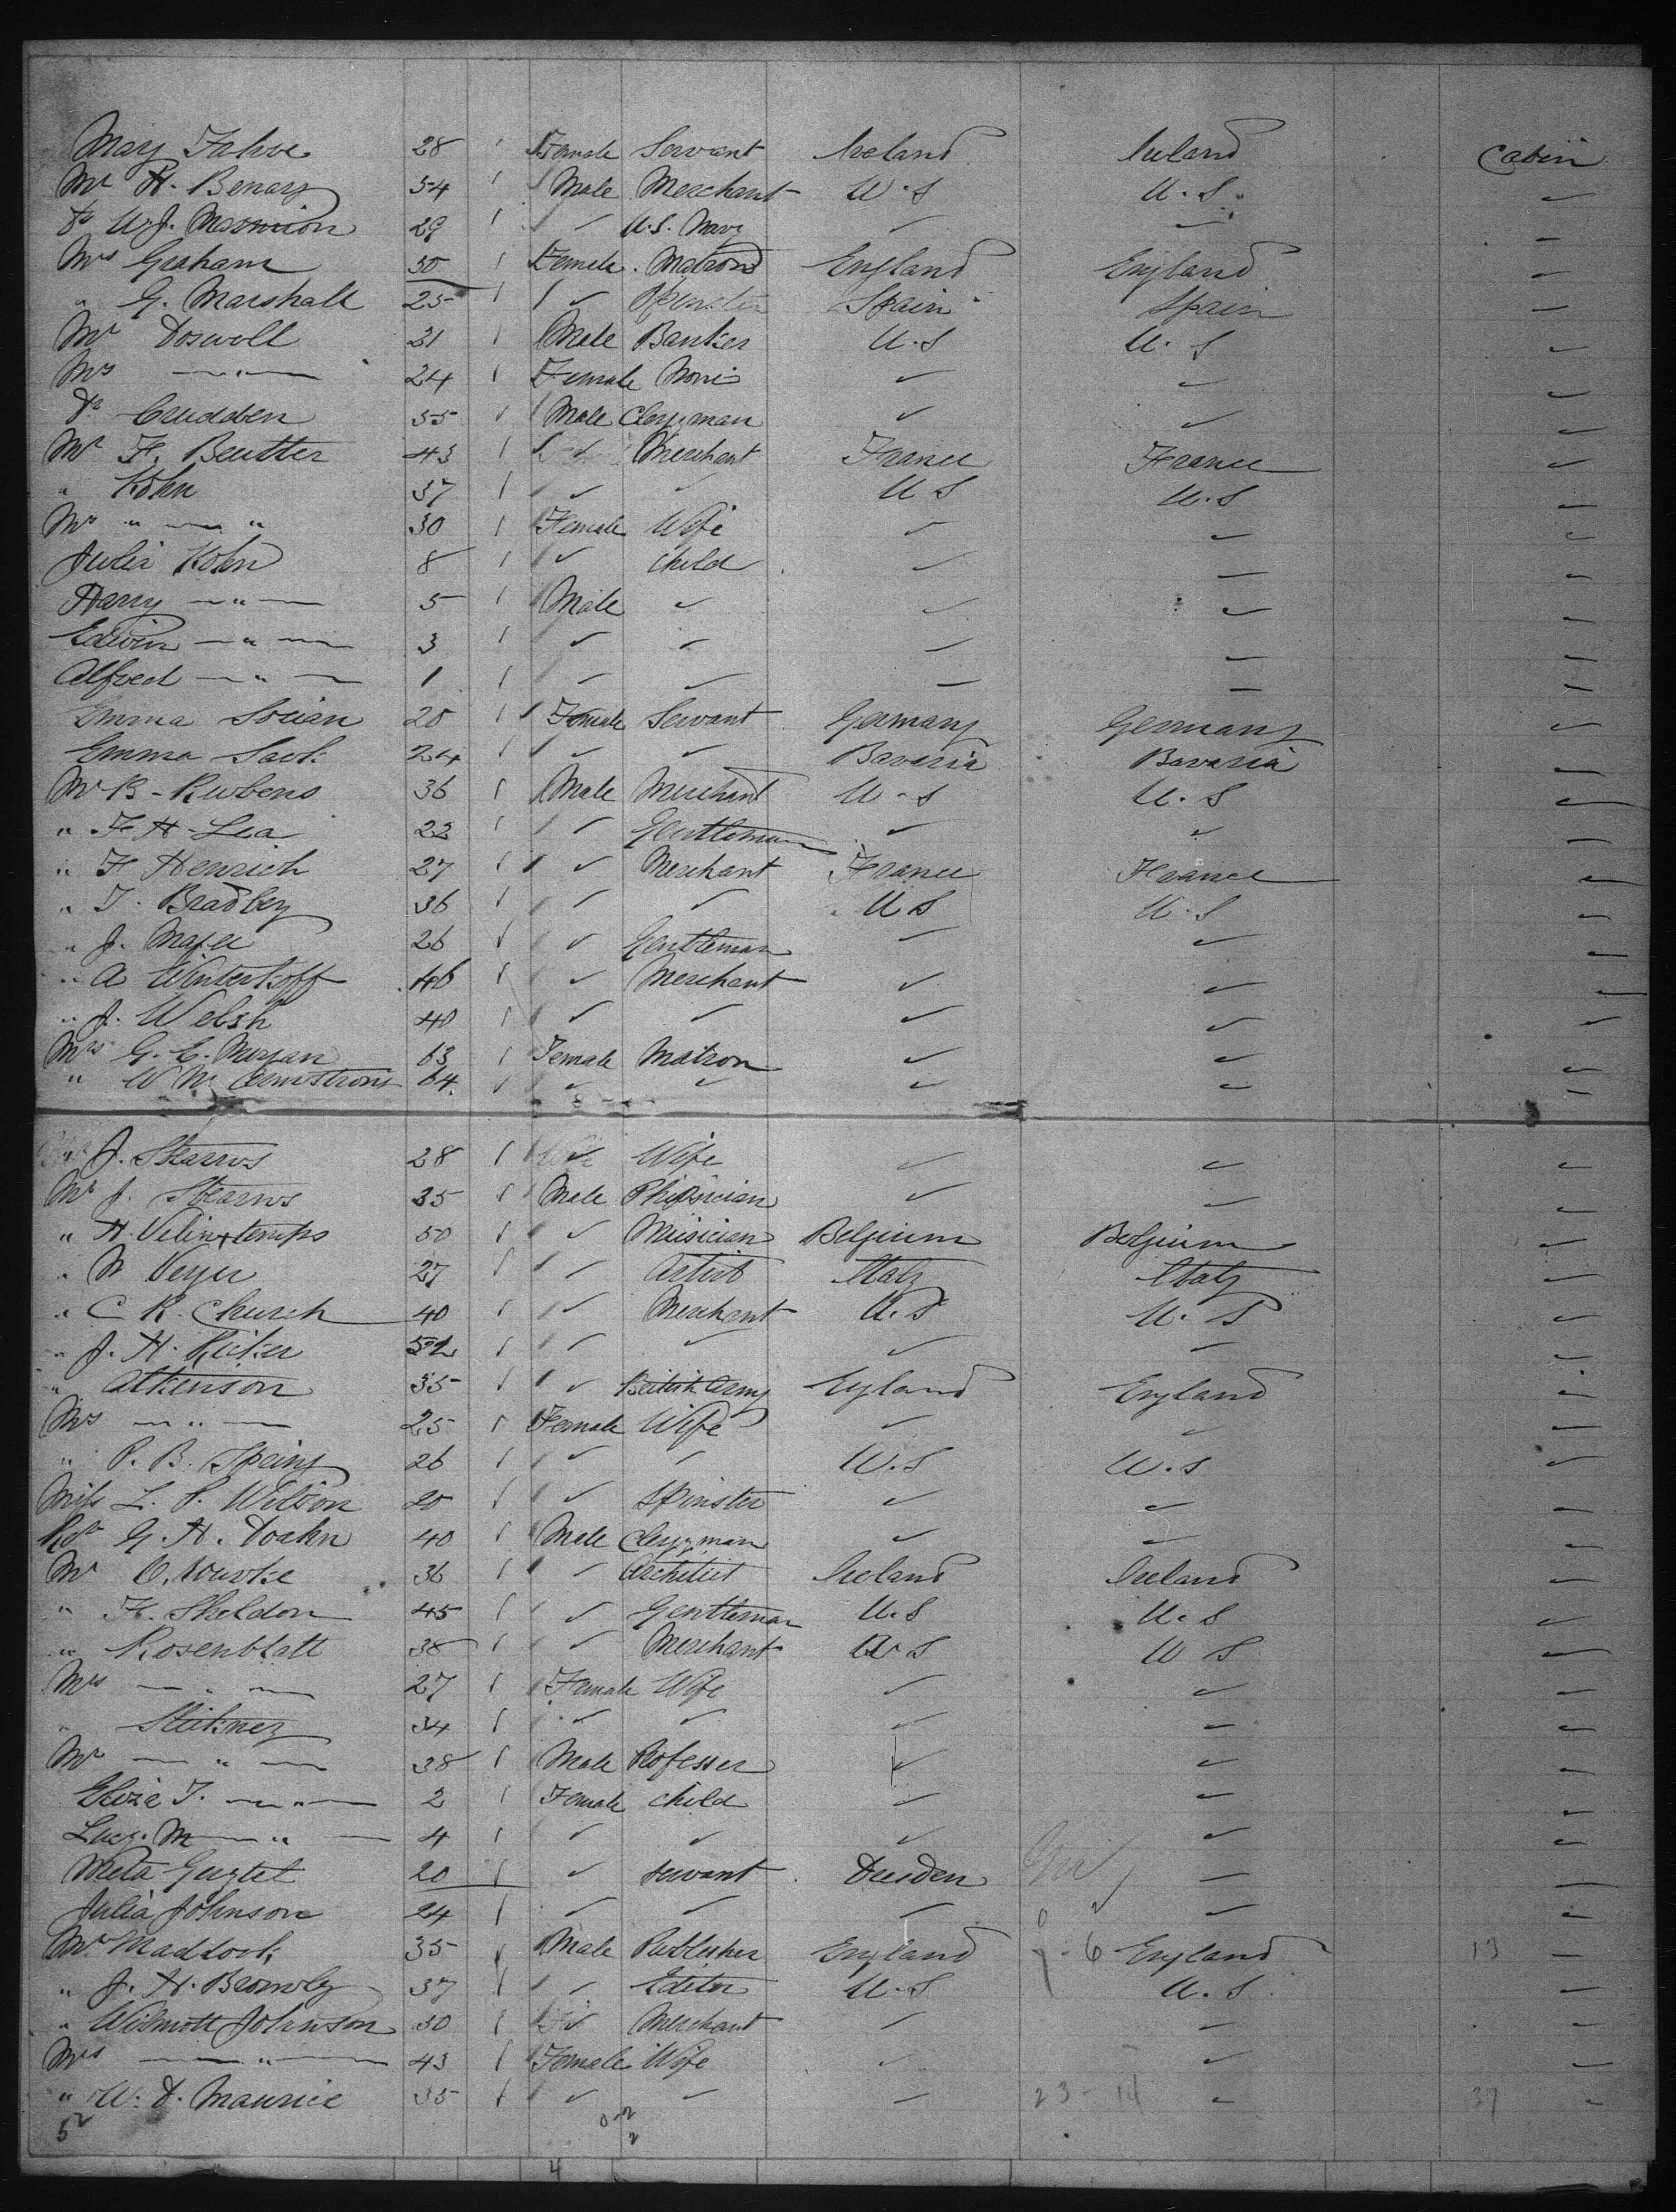 Mary Fahve 28 Female Servant Ireland Ireland Cabin
Mr H. Benary 54 Male Merchant U.S U.S.
Dr W.J. Marmion 29 " U.S. Navy
Mrs Graham 30 Female Matron England England
" G. Marshall 25 Spinster Spain Spain
Mr Doswell 31 Male Banker U.S U.S
Mrs — " — 24 Female None
Dr Crudden 55 Male Clergyman
Mr F. Beutter 43 Merchant France France
" Kohn 37 U S U.S
Mrs " — " 30 Female Wife
Julia Kohn 8 child
Harry — " — 5 Male
Edwin — " — 3
Alfred — " — 1
Emma Sorian 20 Female Servant Germany Germany
Emma Sack 24 Bavaria Bavaria
Mr B. Rubens 36 Male Merchant U.S U.S
" F H Lea 22 Gentleman
" F Henrich 27 Merchant France France
" T. Bradley 36 U S U.S
" J. Magee 26 Gentleman
" A Winterhoff 46 Merchant
" J. Welsh 40
Mrs G. E. Morgan 63 Female Matron
" W M Armstrong 64
" J. Stearns 28 Wife
Mr J. Stearns 35 Male Phipsician
" H. Velinxtemps 50 Musician Belgium Belgium
" N Verger 27 Artist Italy Italy
" C R. Church 40 Merchant U.S U.S
" J. H. Ricker 52
" Atkinson 35 British Army England England
Mrs — " — 25 Female Wife
" P. B. Spring 26 U.S U.S
Miss L. P. Wilson 20 Spinster
Revd G. H. Doahn 40 Male Clergyman
Mr O. Rourke 36 Architect Ireland Ireland
" F. Sheldon 45 Gentleman U.S U.S
" Rosenblatt 38 Merchant U S U S
Mrs — " — 27 Female Wife
" Stickney 34
Mr — " — 38 Male Professer
Eliza T. — " — 2 Female child
Lucy. M — " — 4
Meta Guztel 20 servant Dresden
Julia Johnson 24
Mr Maddock 35 Male Publisher England England 13
" J. H. Bromley 37 Editor U.S U.S.
" Wilmott Johnson 30 Merchant
Mrs — " — 43 Female Wife
" W. D. Maurice 35 23 - 14 37
52
4